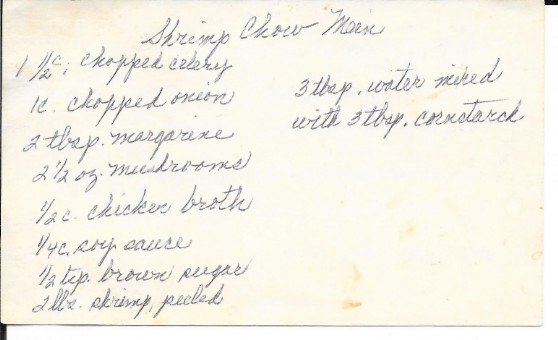 Shrimp Chow Mein
1 1/2 c. chopped celery
1c. chopped onion
2 tbsp. margarine
2 1/2 oz. mushrooms
1/2 c. chicken broth
1/4 c. soy sauce
1/2 tsp. brown sugar
2 lbs. shrimp, peeled
3 tbsp. water mixed
with 3 tbsp. cornstarch